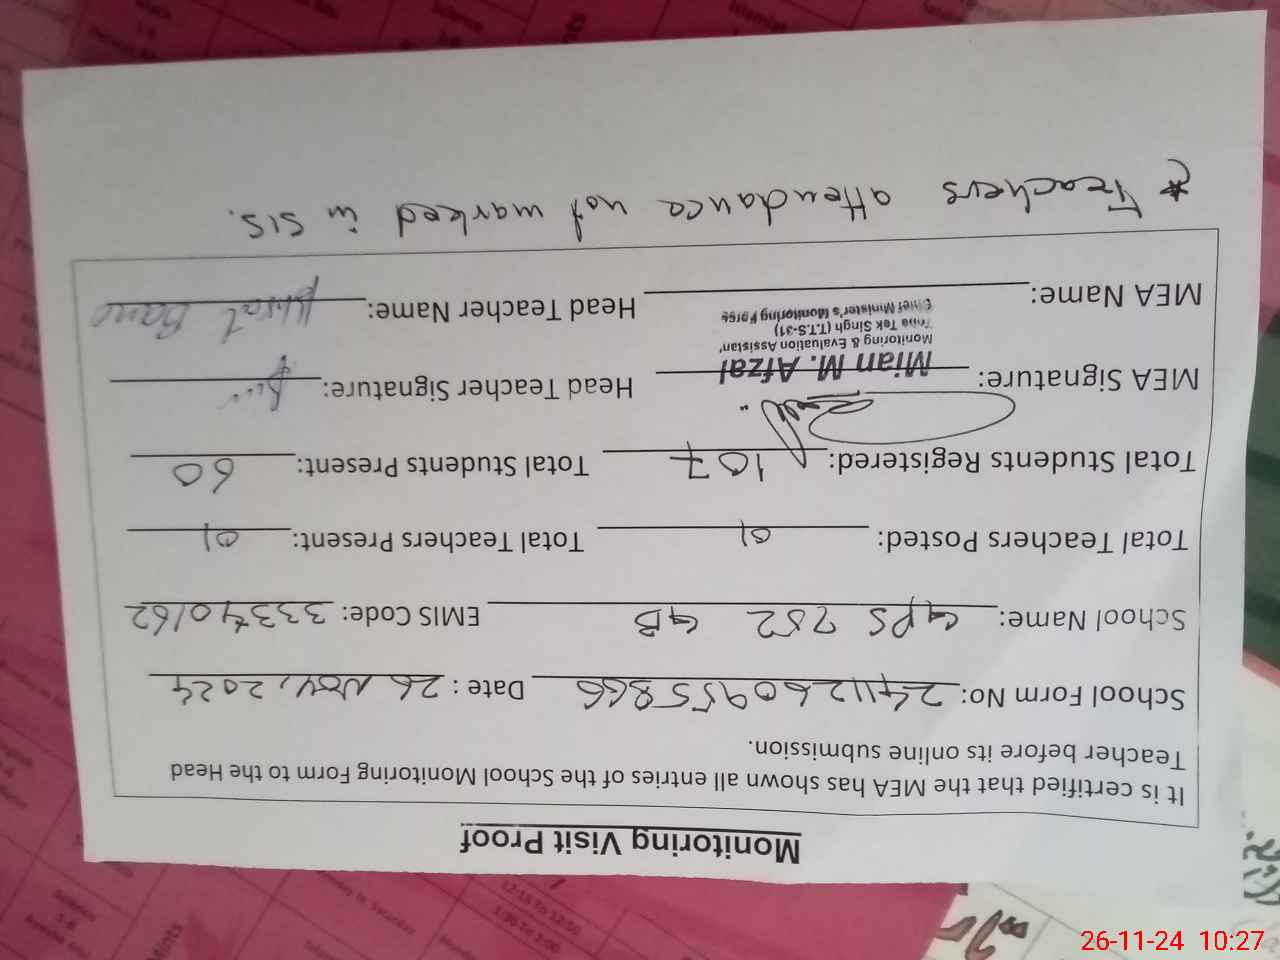 Monitoring Visit Proof
It is certified that the MEA has shown all entries of the School Monitoring Form to the Head
Teacher before its online submission.
School Form No: 2411260955866 Date : 26 Nov, 2024
School Name: GPS 252 GB EMIS Code: 33340162
Total Teachers Posted: 01 Total Teachers Present: 01
Total Students Registered: 107 Total Students Present: 60
MEA Signature: Head Teacher Signature:
Mian M. Afzal
Monitoring & Evaluation Assistan
Toba Tek Singh (T.T.S-31)
Chief Minister's Monitoring Force
MEA Name: Head Teacher Name: Bano
* Teachers attendance not marked in SIS.
26-11-24 10:27